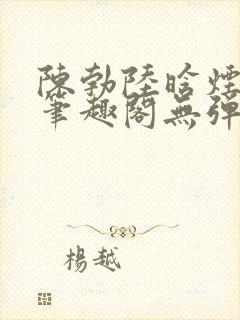 陳勃陸晗煙
筆趣閣無彈
楊越